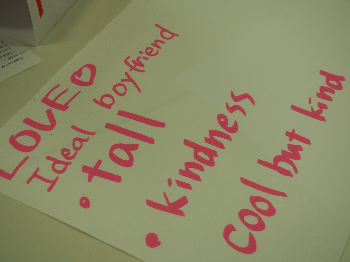 LOVE♡
Ideal boyfriend
• tall
• kindness
Cool but kind